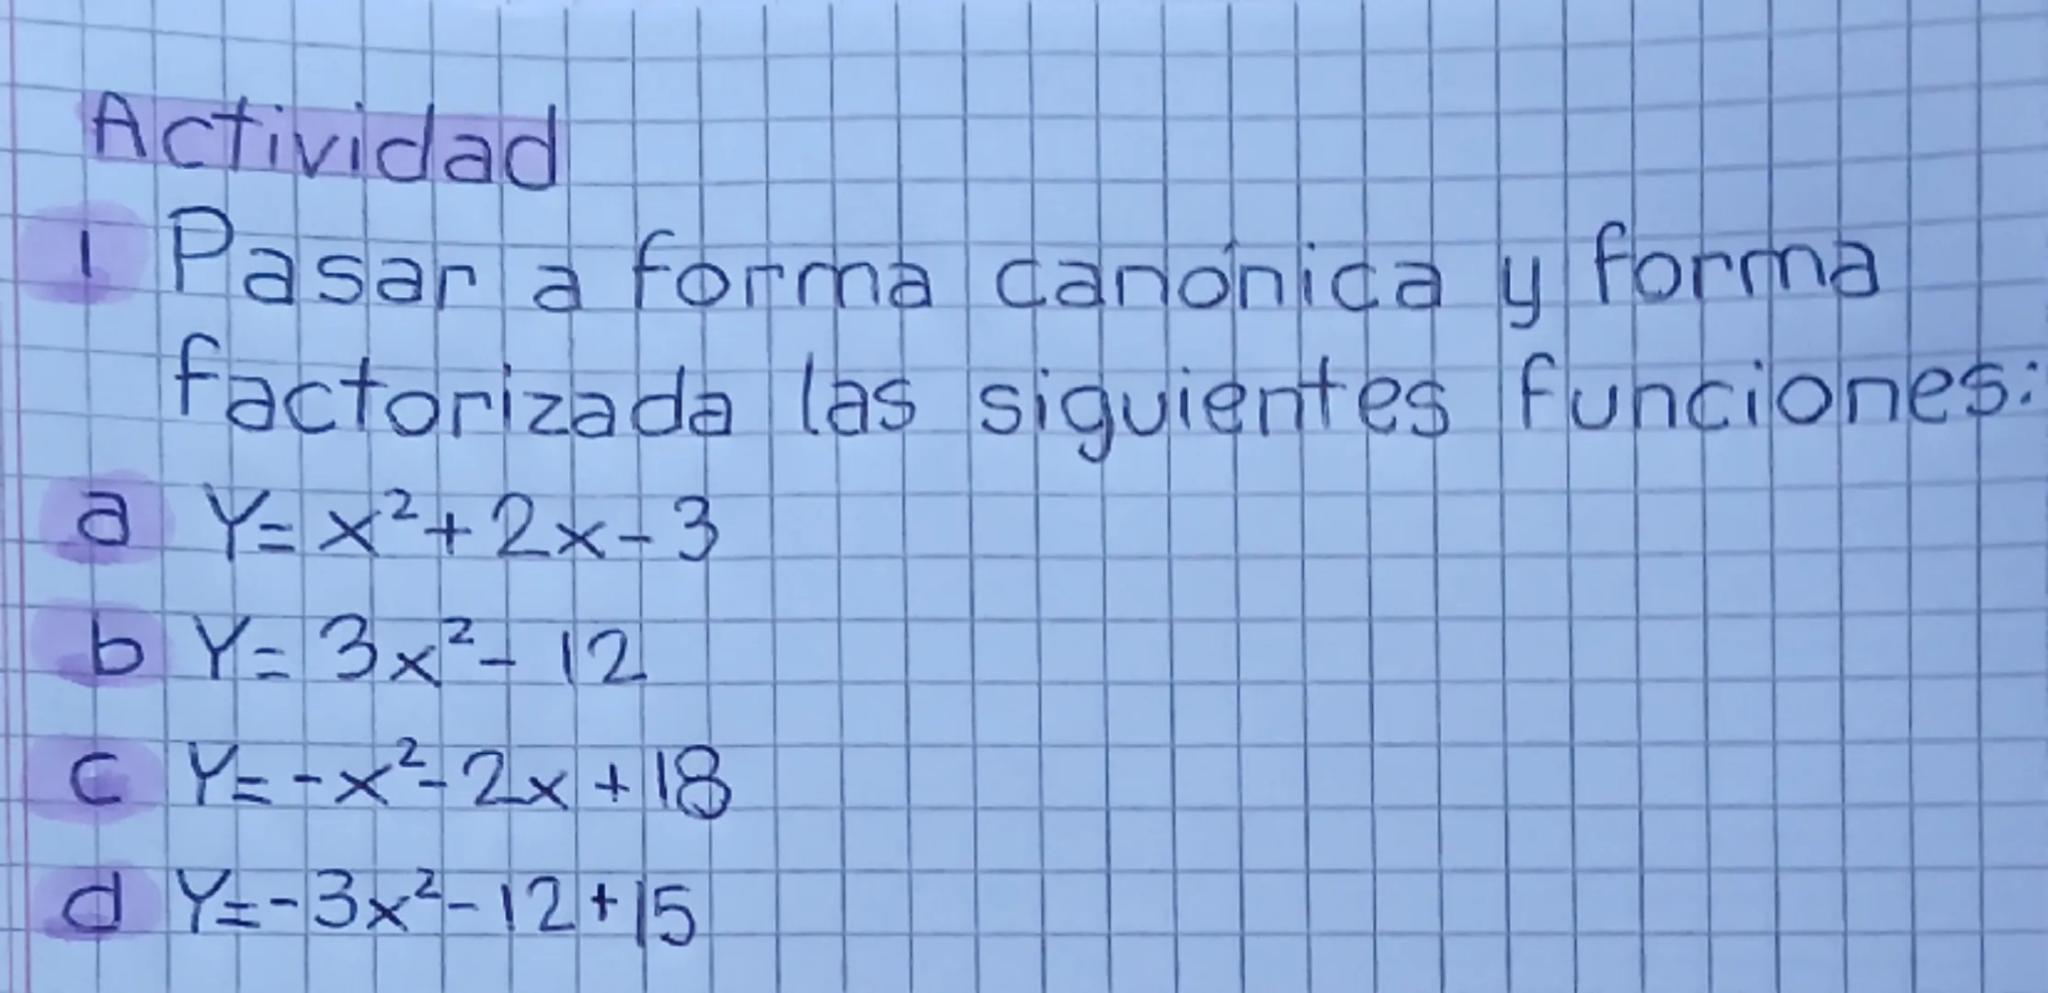 Actividad
1 Pasar a forma canónica y forma
factorizada las siguientes funciones:
a Y= x²+2x-3
b Y= 3x²- 12
c Y=-x²-2x+18
d Y=-3x²-12+15